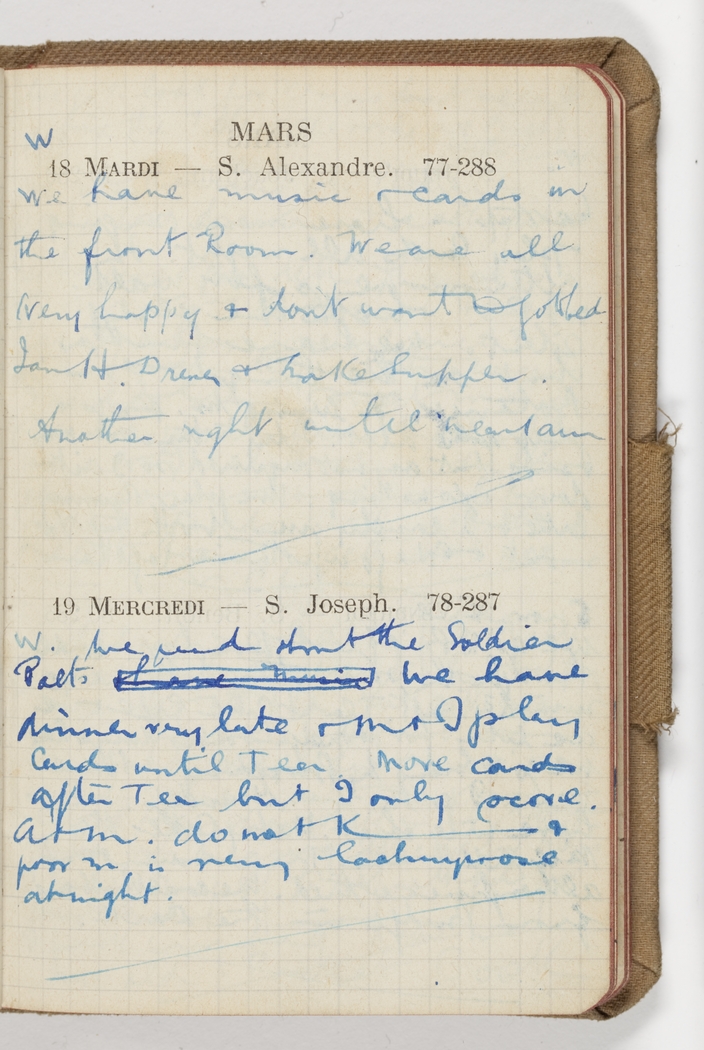 W
MARS
18 MARDI — S. Alexandre. 77-288
We have music & cards in
the front Room. We are all
very happy & don't want
Ian H. & make Supper.
Another night until near 1 am
19 MERCREDI — S. Joseph. 78-287
W. We read about the Soldier
Poets have music We have
dinner very late & M & I play
Cards until Tea More cards
after Tea but I only score.
A & M. do not K &
poor M is very lachrymose
at night.